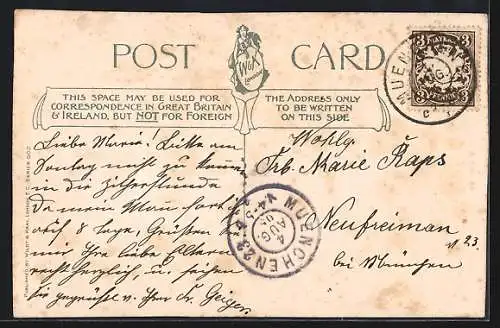 POST CARD
W&K
LONDON
THIS SPACE MAY BE USED FOR
CORRESPONDENCE IN GREAT BRITAIN
& IRELAND, BUT NOT FOR FOREIGN
THE ADDRESS ONLY
TO BE WRITTEN
ON THIS SIDE
BAYERN
3 3
PFENNIG
MUEN
AUG.
Liebe Marie! Bitte am
Sonntag nicht zu kommen
in die Zitherstunde
da mein Mann fort ist
auf 8 Tage, Grüßen Sie
mir Ihre lieben Eltern
recht herzlich, u. seien
Sie gegrüßt v. Ihrer Fr. Geiger
Wohlg.
Frl. Marie Raps
Neufreiman
№ 23
bei München
MUENCHEN 23
4
AUG.
V 4-5
PUBLISHED BY WILDT & KRAY, LONDON, E.C. SERIES